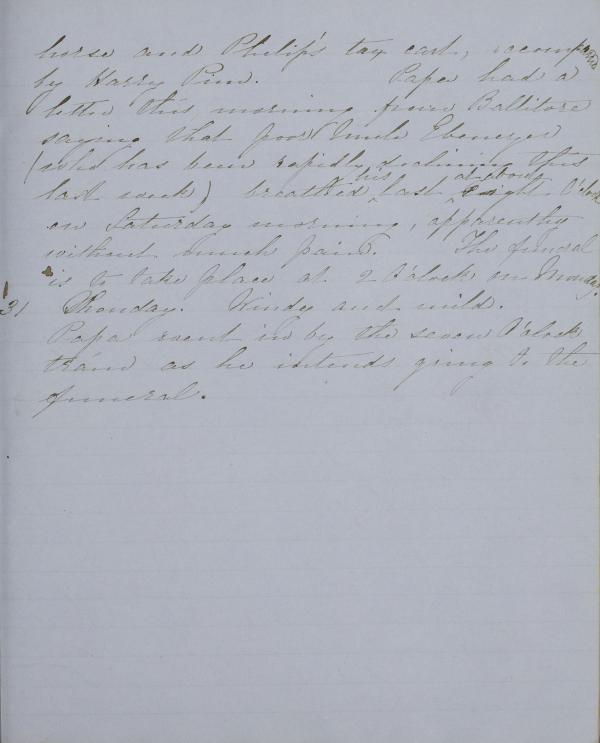 horse and Philip's tax cart, accompanied
by Harry Pim. Papa had a
letter this morning from Ballitore
saying that poor Uncle Ebenezer
(who has been rapidly declining this
last week) breathed his last at about eight O'clock
on Saturday morning, apparently
without much pain. The funeral
is to take place at 2 O'clock on Monday.
31 Monday. Windy and mild.
Papa went in by the seven O'clock
train as he intends going to the
funeral.